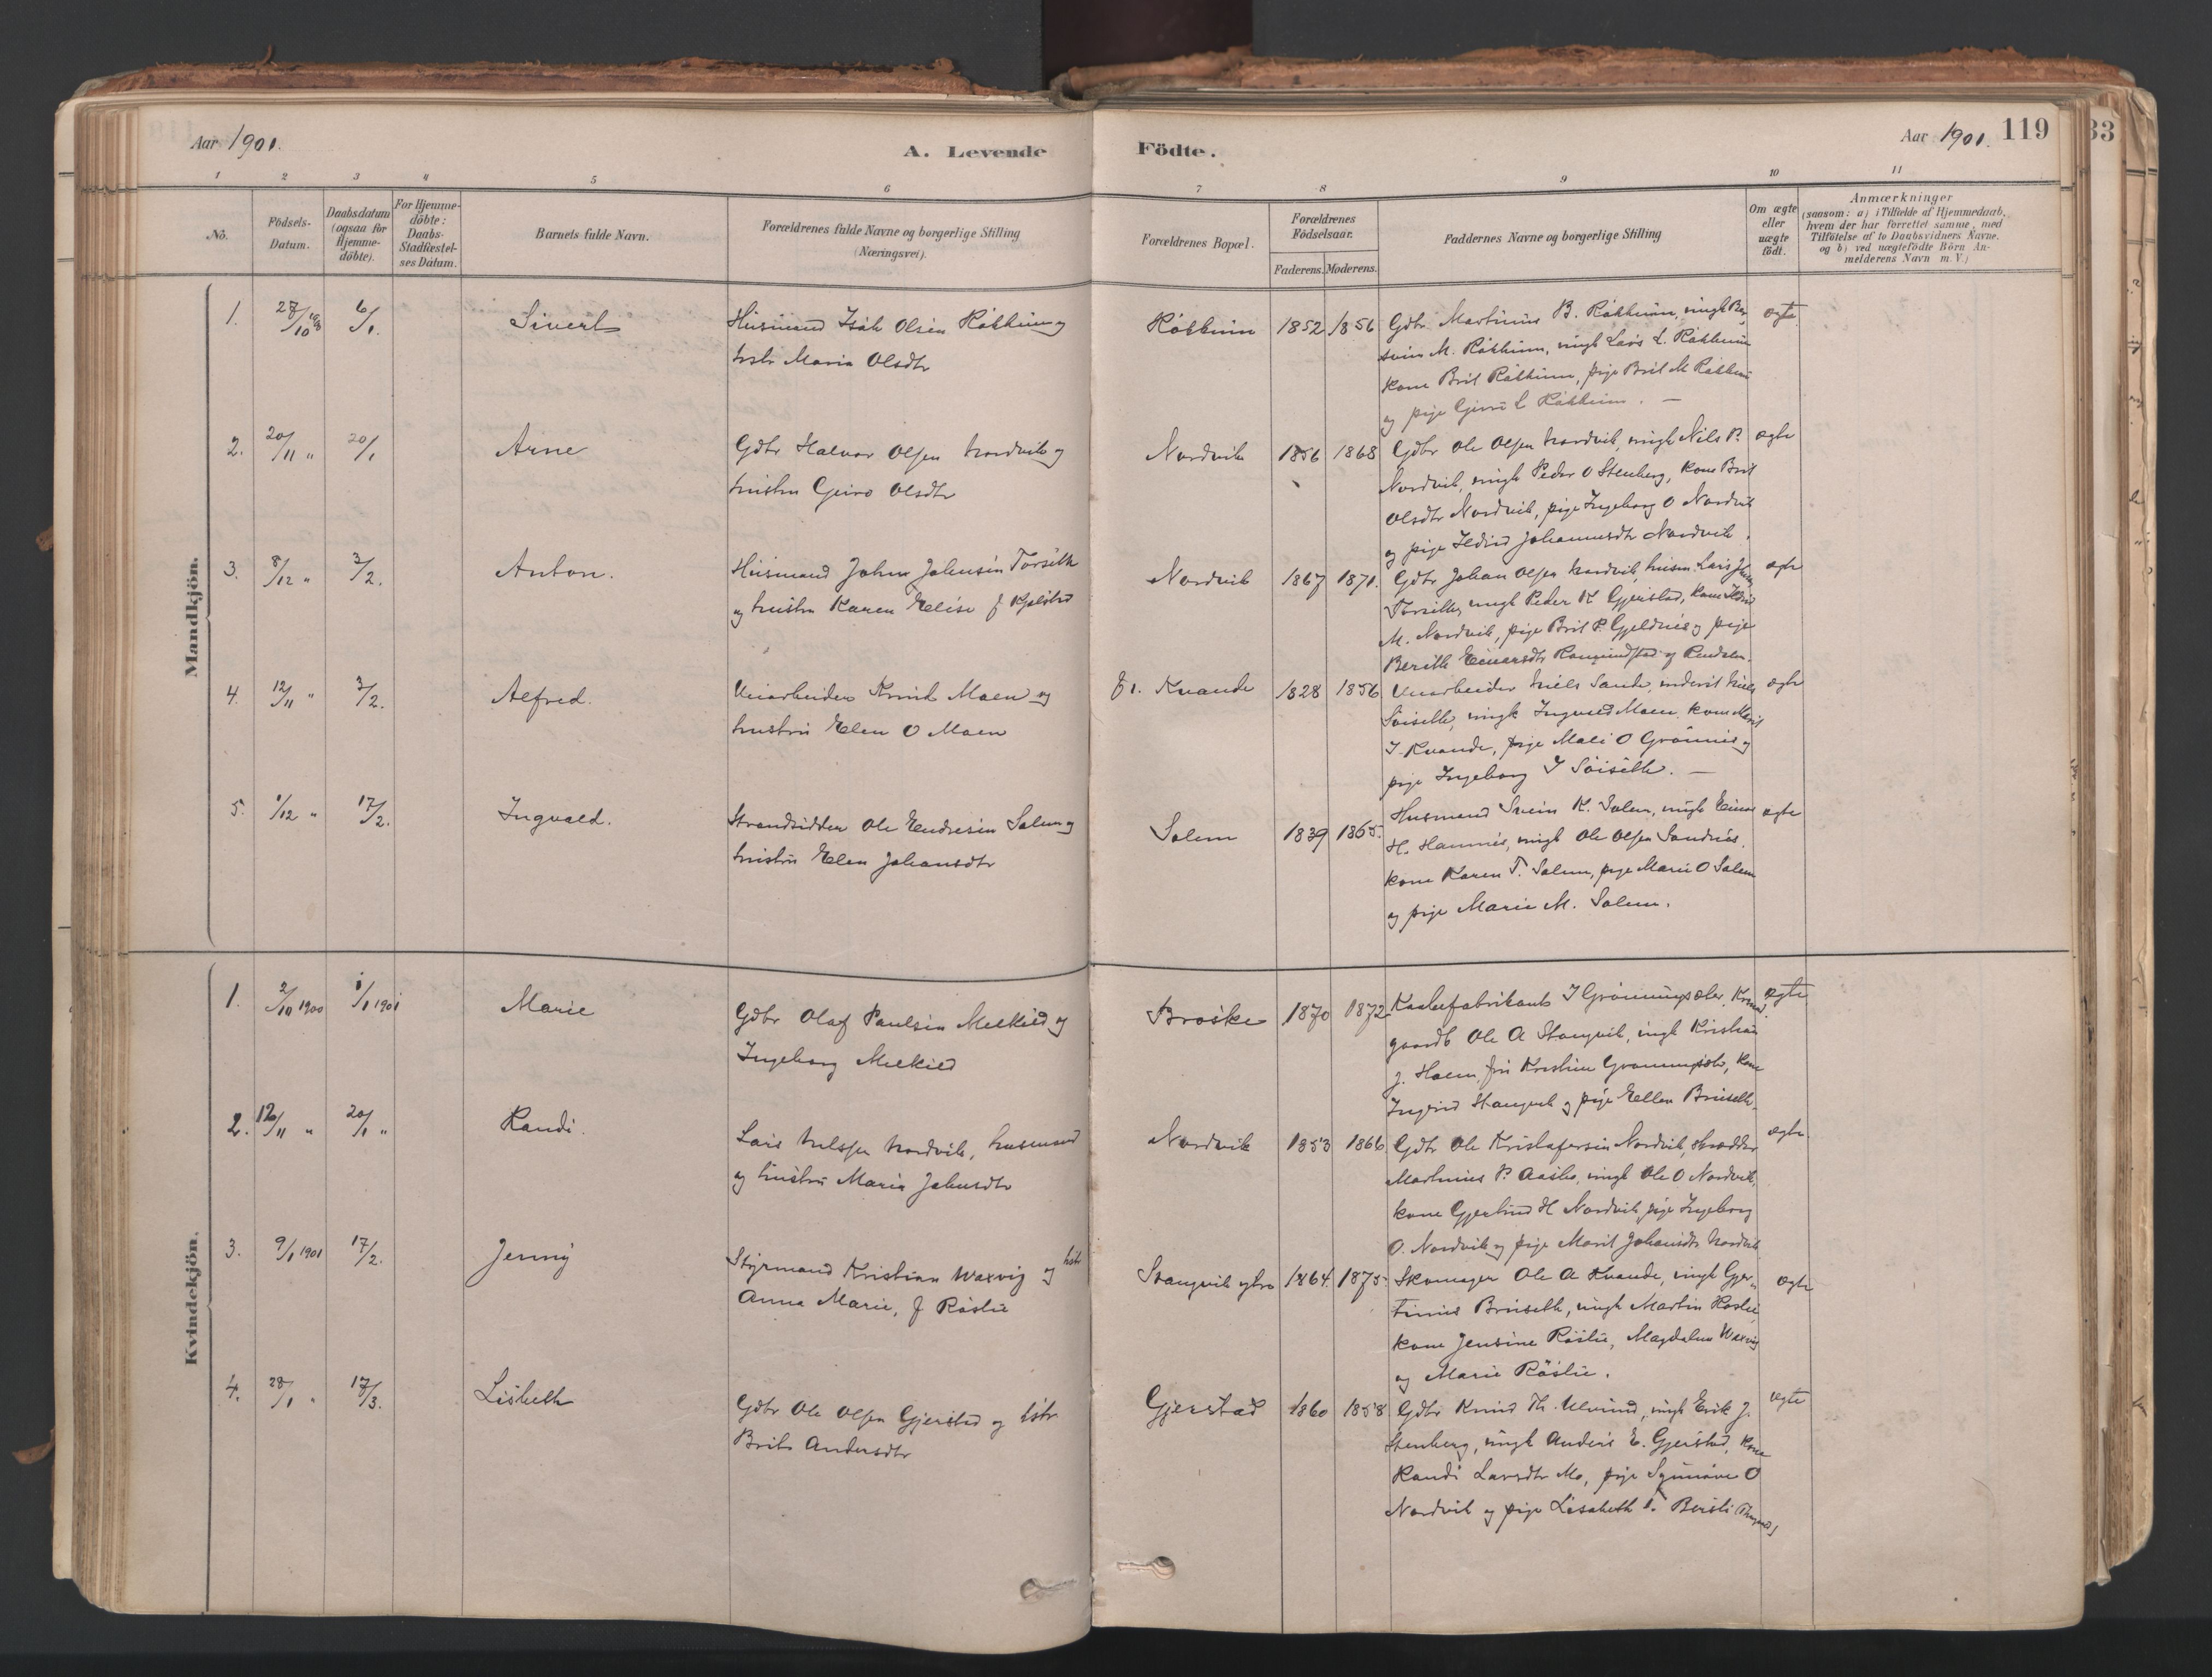 Aar 1901.
A. Levende Födte.
Aar 1901. 119
33
1 2 3 4 5 6 7 8 9 10 11
No.
Födsels-Datum.
Daabsdatum (ogsaa for Hjemme-döbte).
For Hjemme-döbte: Daabs-Stadfæstel-ses Datum.
Barnets fulde Navn.
Forældrenes fulde Navne og borgerlige Stilling (Næringsvei).
Forældrenes Bopæl.
Forældrenes Födselsaar.
Faderens. Moderens.
Faddernes Navne og borgerlige Stilling
Om ægte eller uægte födt.
Anmærkninger
(saasom: a) i Tilfælde af Hjemmedaab,
hvem der har forrettet samme, med
Tilföielse af to Daabsvidners Navne,
og b) ved uægtefödte Börn An-
melderens Navn m. V.)
Mandkjön.
1. 27/10 1900 6/1. Sivert Husmand Isak Olsen Røkkum og Røkkum 1852 1856 Gdbr. Martinus B. Røkkum, ungk
hstr Maria Olsdtr
M. Røkkum, ungk Lars L. Røkkum
kone Brit Røkkum, pige Brit M Røkkum
og pige L Røkkum. — ægte
2. 20/11 " 20/1 Arne Gdbr Halvor Olsen Nordvik og Nordvik 1856 1868 Gdbr Ole Olsen Nordvik, ungk Nils P. ægte
hustru Geiro Olsdtr
Nordvik, ungk Peder O Stenberg, kone Brit
Olsdtr Nordvik, pige Ingeborg O Nordvik
og pige Ildrid Johannesdtr Nordvik.
3. 8/12 " 3/2. Anton. Husmand John Johnsen Torseth Nordvik 1867 1871. Gdbr Johan Olsen Nordvik, husm. Lars ægte
og hustru Karen Elise f
ungk Peder K Gjerstad, kone Ildrid
M. Nordvik, pige Brit P. Gjeldnes og pige
Berith Einarsdtr
4. 12/11 " 3/2. Alfred. Veiarbeider Knud Moen og Kvande 1828 1856 Veiarbeider Niels Sande, Niels ægte
hustru Elen O Moen
ungk Ingvald Moen, kone Marit
I. Kvande, pige Mali O Grønnes og
pige Ingeborg I Søiseth. —
5. 1/12 " 17/2. Ingvald. Strandsidder Ole Endresen Solem og Solem 1839 1865. Husmand Svein K. Solem, ungk Einar ægte
hustru Elen Johansdtr
H. Hamnes, ungk Ole Olsen Sandnes.
kone Karen T. Solem, pige Marie O Solem
og pige Marie M. Solem.
Kvindekjön.
1. 2/10 1900 1/1 1901 Marie Gdbr Olaf Paulsen Melkild og Brøske 1870 1872 J Grønningsæter, ægte
Ingeborg Melkild
Ole A Stangvik, ungk Kristian
J. Holm, fru Kristine Grønningsæter, kone
Ingrid Stangvik og pige Ellen Bruseth.
2. 12/11 " 20/1 " Randi. Lars Nilssen Nordvik, husmand Nordvik 1853 1866 Gdbr Ole Kristofersen Nordvik, skrædder ægte
og hustru Marie Johnsdtr
Martinus P. Aasbø, ungk Ole O Nordvik,
kone Gjertrud H Nordvik, pige Ingeborg
O. Nordvik og pige Marit Johansdtr Nordvik
3. 9/1 1901 17/2. Jenny Styrmand Kristian Waxvig og hstr Stangvik ytre 1864. 1875 Skomager Ole A Kvande, ungk ægte
Anna Marie, f Røslie
Bruseth, ungk Martin Røslie,
kone Jensine Røslie, Magdalena Waxvig
og Marie Røslie.
4. 28/1 " 17/3. Lisbeth Gdbr Ole Olsen Gjerstad og hstr Gjerstad 1860 1858 Gdbr Knud Th. Ulvund, ungk Erik J. ægte
Brit Andersdtr
Stenberg, ungk Anders E. Gjerstad, kone
Randi Larsdtr Mo, pige Synnøve O
Nordvik og pige Lisabeth